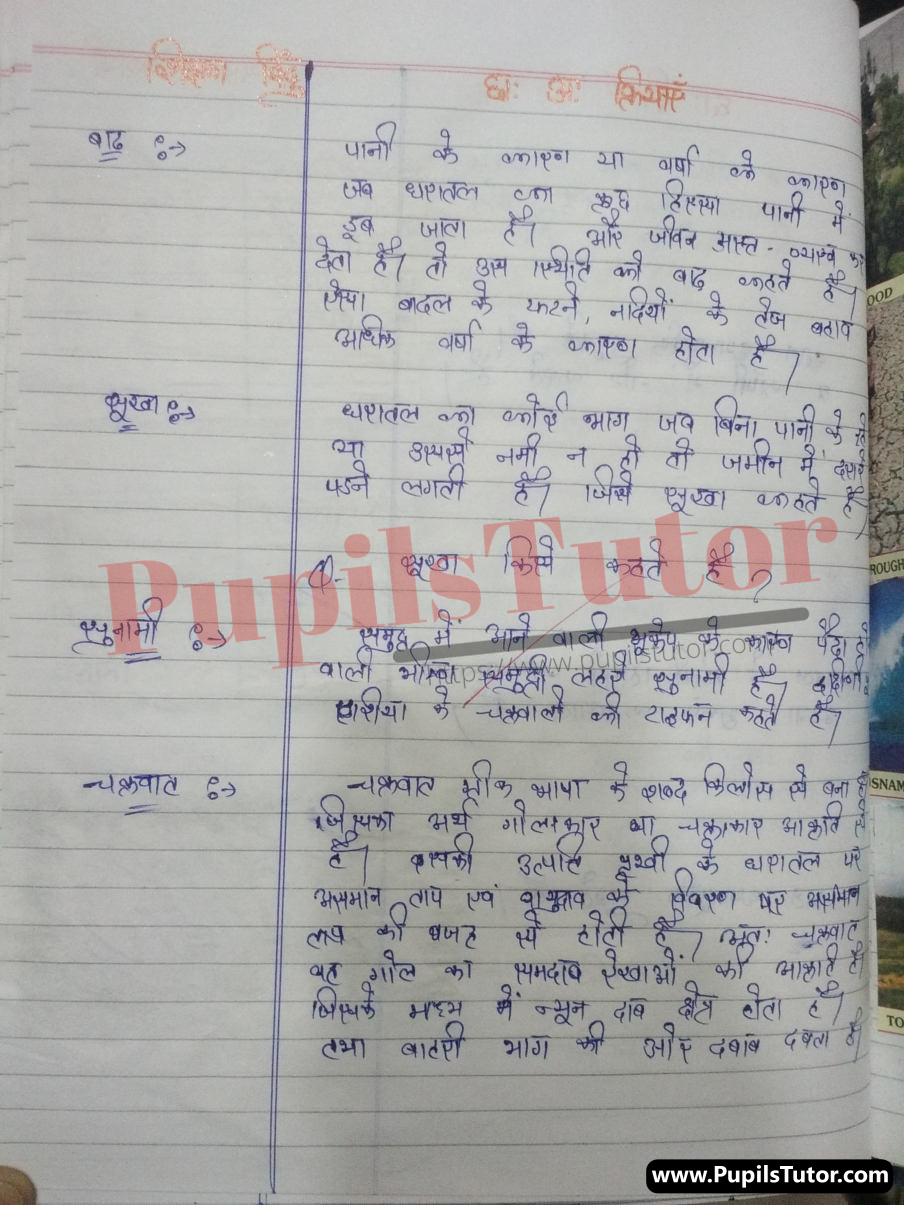 शिक्षण बिंदु छा: अ: क्रियाएं
बाढ़ :→ पानी के कारण या वर्षा के कारण
जब धरातल का कुछ हिस्सा पानी में
डूब जाता है। और जीवन अस्त-व्यस्त कर
देता है। तो उस स्थिति को बाढ़ कहते हैं।
ऐसा बादल के फटने, नदियों के तेज बहाव
अधिक वर्षा के कारण होता है।
सूखा :→ धरातल का कोई भाग जब बिना पानी के रहे
या उससे नमी न हो तो जमीन में दरारे
पड़ने लगती है। जिसे सूखा कहते हैं।
प्र- सूखा किसे कहते है ?
सुनामी :→ समुद्र में आने वाली भूकंप के कारण पैदा हो
वाली समुद्री लहरें सुनामी है।
एशिया के चक्रवातो को टाइफन कहते है।
चक्रवात :→ चक्रवात ग्रीक भाषा के शब्द किलोस से बना है
जिसका अर्थ गोलाकार या चक्राकार आकृति से
है। इसकी उत्पति पृथ्वी के धरातल पर
असमान ताप एवं के विवरण पर असमान
की वजह से होती है। अतः चक्रवात
वह गोल का समदाब रेखाओं की आकृति है।
जिसके मध्य में न्यून दाब क्षेत्र होता है।
तथा बाहरी भाग की ओर दबाब है।
PupilsTutor
https://www.pupilstutor.com
OOD
ROUGH
SNAM
TO
www.PupilsTutor.com